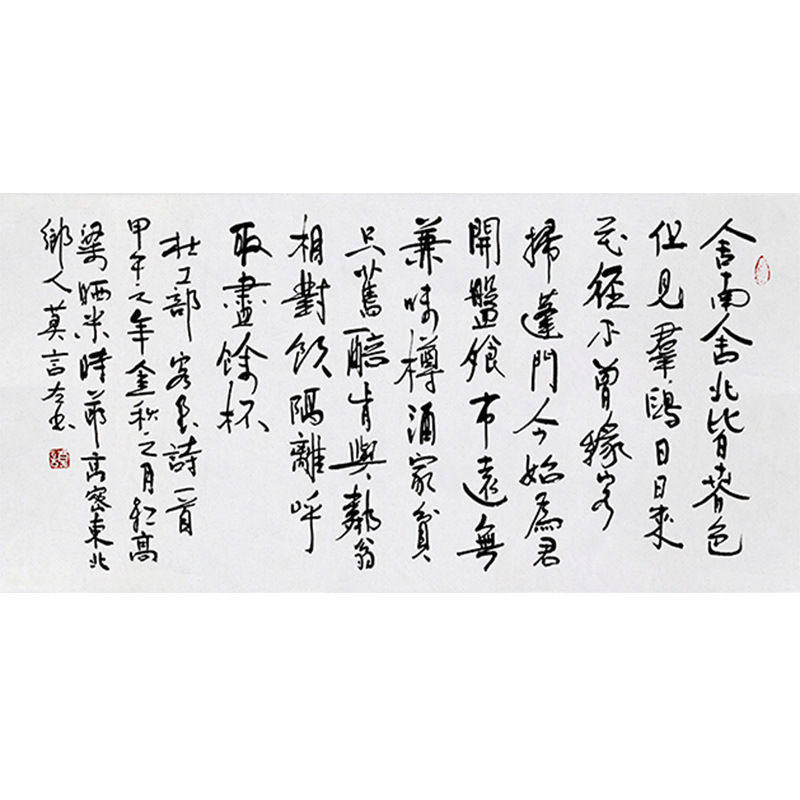 舍南舍北皆春色
但見羣鷗日日來
花徑不曾緣客
掃蓬門今始為君
開盤飧市遠無
兼味樽酒家貧
只舊醅肯與鄰翁
相對飲隔離呼
取盡餘杯
杜工部客至詩一首
甲午之年金秋之月紅高
粱晒米時節高密東北
鄉人莫言左書